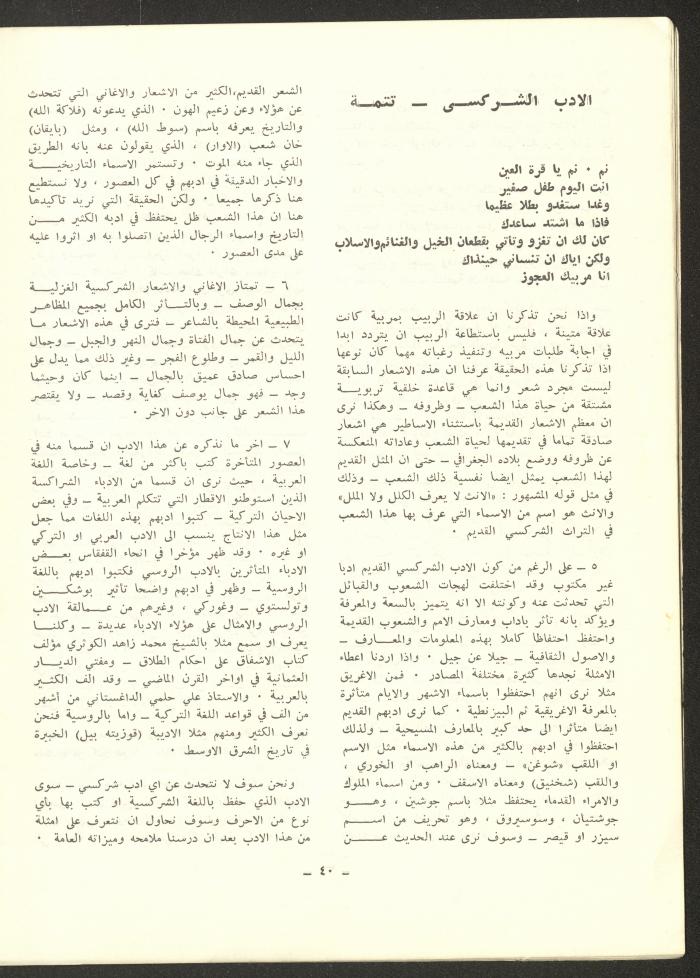 الادب الشركسى ــ تتمة
نم ٠ نم يا قرة العين
انت اليوم طفل صغير
وغدا ستغدو بطلا عظيما
فاذا ما اشتد ساعدك
كان لك ان تغزو وتاتي بقطعان الخيل والغنائم والاسلاب
ولكن اياك ان تنساني حينذاك
انا مربيك العجوز
واذا نحن تذكرنا ان علاقة الربيب بمربية كانت
علاقة متينة ، فليس باستطاعة الربيب ان يتردد ابدا
في اجابة طلبات مربيه وتنفيذ رغباته مهما كان نوعها
اذا تذكرنا هذه الحقيقة عرفنا ان هذه الاشعار السابقة
ليست مجرد شعر وانما هي قاعدة خلفية تربويــة
مشتقة من حياة هذا الشعب ــ وظروفه ــ وهكذا نرى
ان معظم الاشعار القديمة باستثناء الاساطير هي اشعار
صادقة تماما في تقديمها لحياة الشعب وعاداته المنعكسة
عن ظروفه ووضع بلاده الجغرافي ــ حتى ان المثل القديم
لهذا الشعب يمثل ايضا نفسية ذلك الشعب ــ وذلك
في مثل قوله المشهور : «الانث لا يعرف الكلل ولا الملل»
والانث هو اسم من الاسماء التي عرف بها هذا الشعب
في التراث الشركسي القديم ٠
٥ ــ على الرغم من كون الادب الشركسي القديم ادبا
غير مكتوب وقد اختلفت لهجات الشعوب والقبائل
التي تحدثت عنه وكونته الا انه يتميز بالسعة والمعرفة
ويؤكد بانه تأثر باداب ومعارف الامم والشعوب القديمة
واحتفظ احتفاظا كاملا بهذه المعلومات والمعارف ــ
والاصول الثقافية ــ جيلا عن جيل ٠ واذا اردنا اعطاء
الامثلة نجدها كثيرة مختلفة المصادر ٠ فمن الاغريق
مثلا نرى انهم احتفظوا باسماء الاشهر والايام متأثرة
بالمعرفة الاغريقية ثم البيزنطية ٠ كما نرى ادبهم القديم
ايضا متأثرا الى حد كبير بالمعارف المسيحية ــ ولذلك
احتفظوا في ادبهم بالكثير من هذه الاسماء مثل الاسم
او اللقب «شوغن» ــ ومعناه الراهب او الخوري ،
واللقب (شخنيق) ومعناه الاسقف ٠ ومن اسماء الملوك
والامراء القدماء يحتفظ مثلا باسم جوشين ، وهــو
جوشتيان ، وسوسبروق ، وهو تحريف من اســم
سيزر او قيصر ــ وسوف نرى عند الحديث عــن
الشعر القديم،الكثير من الاشعار والاغاني التي تتحدث
عن هؤلاء وعن زعيم الهون ٠ الذي يدعونه (فلاكة الله)
والتاريخ يعرفه باسم (سوط الله) ، ومثل (بايقان)
خان شعب (الاوار) ، الذي يقولون عنه بانه الطريق
الذي جاء منه الموت ٠ وتستمر الاسماء التاريخيــة
والاخبار الدقيقة في ادبهم في كل العصور ، ولا نستطيع
هنا ذكرها جميعا ٠ ولكن الحقيقة التي نريد تأكيدها
هنا ان هذا الشعب ظل يحتفظ في ادبه الكثير مــن
التاريخ واسماء الرجال الذين اتصلوا به او اثروا عليه
على مدى العصور ٠
٦ ــ تمتاز الاغاني والاشعار الشركسية الغزليــة
بجمال الوصف ــ وبالتــاثر الكامل بجميع المظاهــر
الطبيعية المحيطة بالشاعر ــ فترى في هذه الاشعار مـا
يتحدث عن جمال الفتاة وجمال النهر والجبل ــ وجمال
الليل والقمر ــ وطلوع الفجر ــ وغير ذلك مما يدل على
احساس صادق عميق بالجمال ــ اينما كان وحيثما
وجد ــ فهو جمال يوصف كغاية وقصد ــ ولا يقتصر
هذا الشعر على جانب دون الاخر ٠
٧ ــ اخر ما نذكره عن هذا الادب ان قسما منه في
العصور المتأخرة كتب باكثر من لغة ــ وخاصة اللغة
العربية ، حيث نرى ان قسما من الادباء الشراكسة
الذين استوطنو الاقطار التي تتكلم العربية ــ وفي بعض
الاحيان التركية ــ كتبوا ادبهم بهذه اللغات مما جعل
مثل هذا الانتاج ينسب الى الادب العربي او التركي
او غيره ٠ وقد ظهر مؤخرا في انحاء القفقاس بعــض
الادباء المتأثرين بالادب الروسي فكتبوا ادبهم باللغة
الروسية ــ وظهر في ادبهم واضحا تأثير بوشكــين
وتولستوي ــ وغوركي ، وغيرهم من عــمالقة الادب
الروسي والامثال على هؤلاء الادباء عديدة ــ وكلنــا
يعرف او سمع مثلا بالشيخ محمد زاهد الكوثري مؤلف
كتاب الاشفاق على احكام الطلاق ــ ومفتي الديــار
العثمانية في اواخر القرن الماضي ــ وقد الف الكثــير
بالعربية ٠ والاستاذ علي حلمي الداغستاني من أشهر
من الف في قواعد اللغة التركية ــ واما بالروسية فنحن
نعرف الكثير ومنهم مثلا الاديبة (قوزيته بيل) الخبيرة
في تاريخ الشرق الاوسط ٠
ونحن سوف لا نتحدث عن اي ادب شركسي ــ سوى
الادب الذي حفظ باللغة الشركسية او كتب بها بأي
نوع من الاحرف وسوف نحاول ان نتعرف على امثلة
من هذا الادب بعد ان درسنا ملامحه وميزاته العامة ٠
ــ ٤٠ ــ